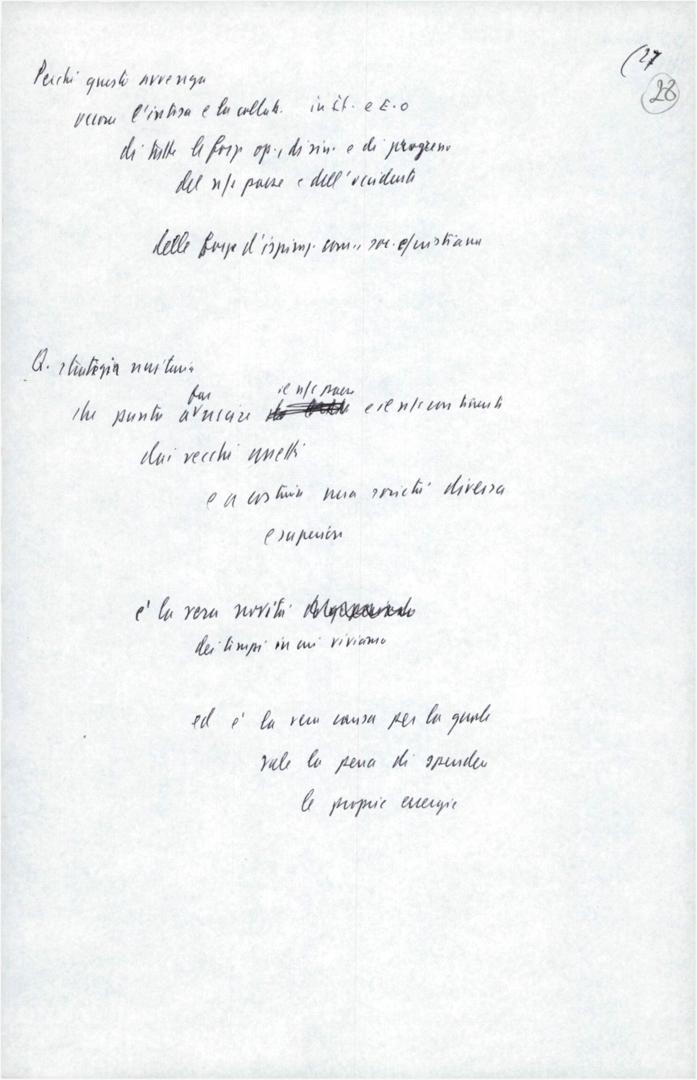 (27
28
Perché questo avvenga
occorre l'intesa e la collab. in It. e E.O
di tutte le forze op., di sin. e di progresso
del n/s paese e dell'occidente
delle forze d'ispiraz. com., soc. e cristiana
Q. strategia unitaria
far il n/s paese
che punta a uscire e il n/s continente
dai vecchi assetti
e a costruire una società diversa
e superiore
è la vera novità
dei tempi in cui viviamo
ed è la vera causa per la quale
vale la pena di spendere
le proprie energie